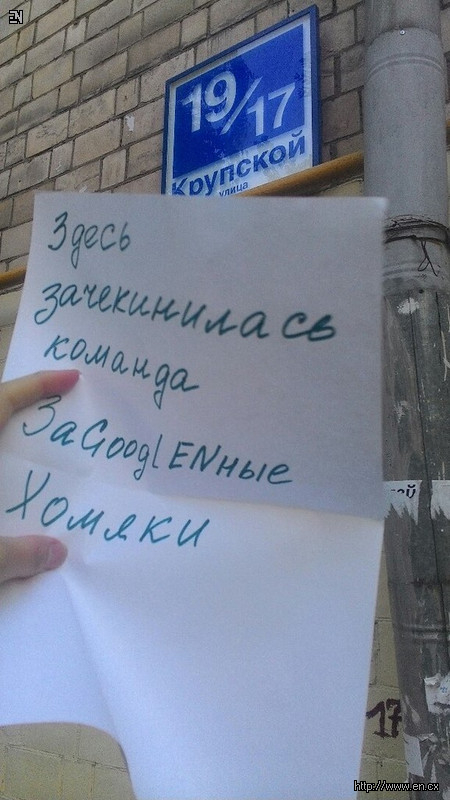 EN
19/17
Крупской
улица
Здесь
зачекинилась
команда
ЗаGooglENные
Хомяки
17
http://www.en.cx